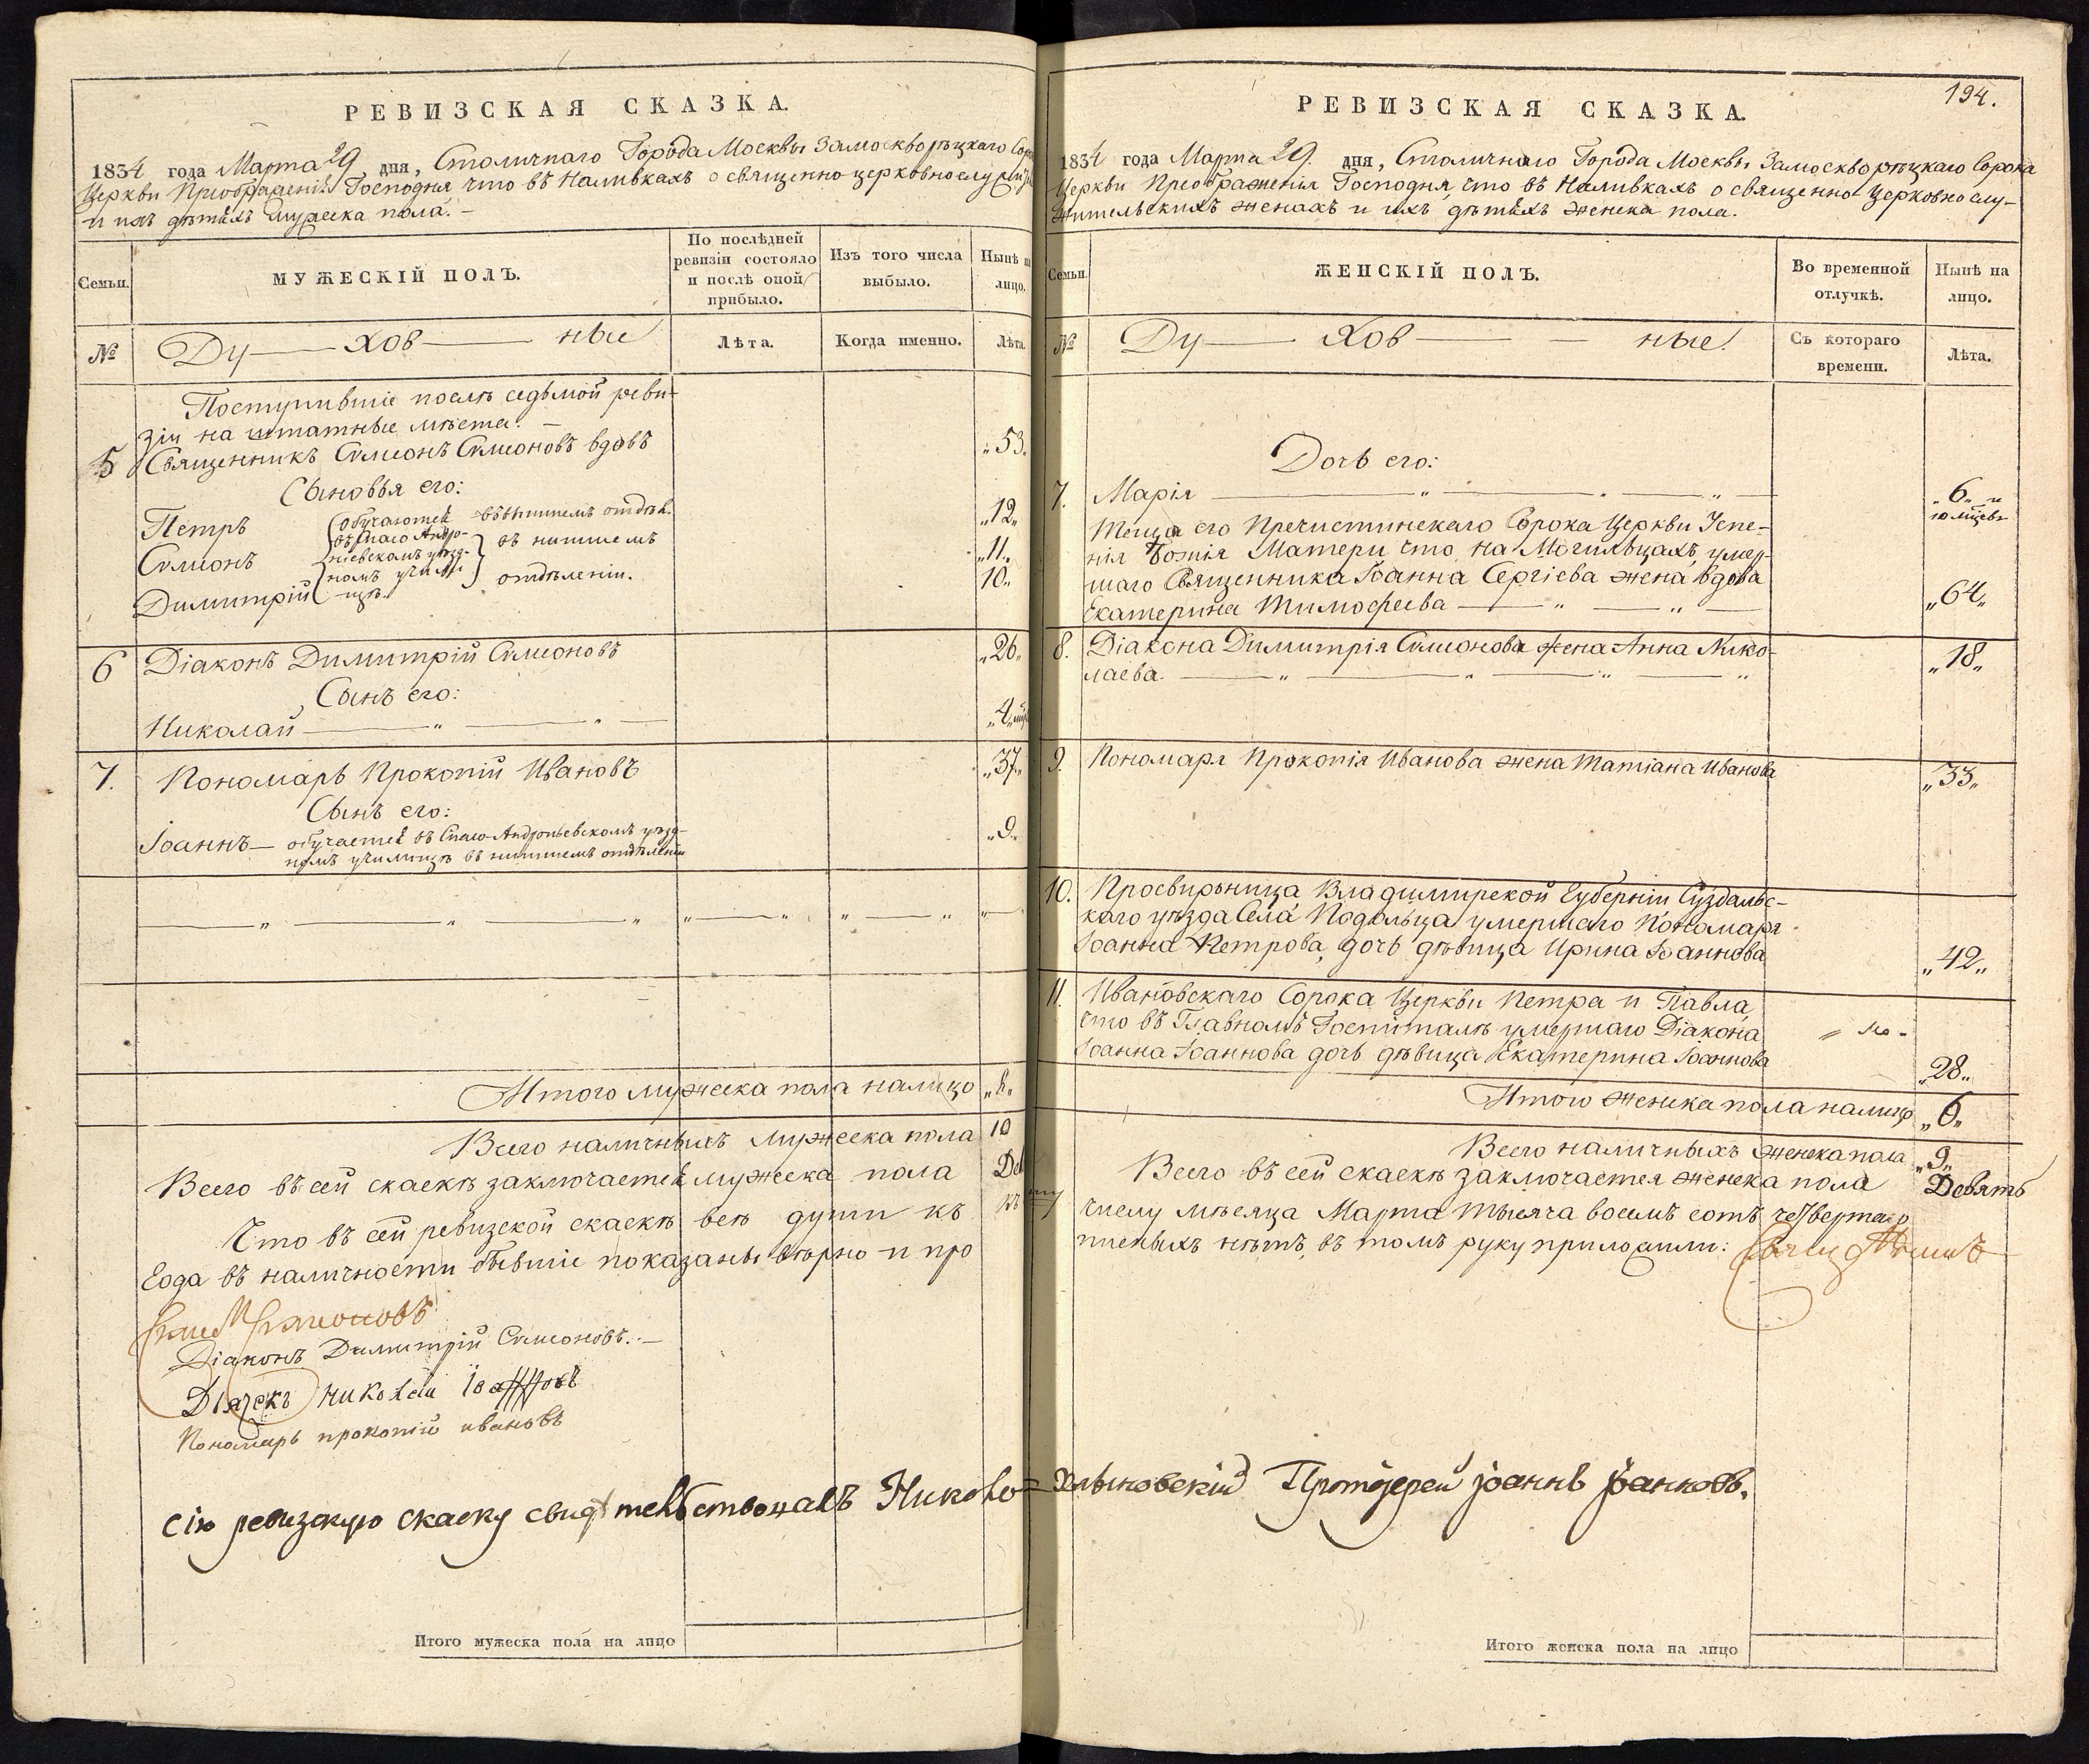 РЕВИЗСКАЯ СКАЗКА.
1834 года Марта 29 дня, Столичнаго Города Москвы Замоскворѣцкаго Соро
Церкви Преображенія Господня что въ Наливкахъ о священно церковнослужи
и ихъ дѣтяхъ мужеска пола. –
Семьи.
МУЖЕСКІЙ ПОЛЪ.
По послѣдней ревизіи состояло и послѣ оной прибыло.
Изъ того числа выбыло.
Нынѣ на лицо.
№
Ду — хов — ные
Лѣта.
Когда именно.
Лѣта.
Поступившіе послѣ седьмой реви-
зіи на штатные мѣста. –
5 Священникъ Симеонъ Симеоновъ вдовъ „53„
Сыновья его:
Петръ обучаются въ Спасо Андро-ніевскомъ уѣзд-номъ учили-щѣ. въ высшемъ отдѣл. „12„
Симеонъ въ нисшемъ „11„
Димитрій отдѣленіи. 10„
6 Діаконъ Димитрій Симеоновъ „26„
Сынъ его:
Николай — „ — „ — „4„ мѣс
7. Пономарь Прокопій Ивановъ „37„
Сынъ его:
Іоаннъ — обучается въ Спасо-Андроньевскомъ уѣзд- „9„
номъ училищѣ въ нисшемъ отдѣленіи
Итого мужеска пола налицо „8„
Всего наличныхъ мужеска пола 10
Всего въ сей сказкѣ заключается мужеска пола Де
Что въ сей ревизской сказкѣ всѣ души къ
Года въ наличности бывшіе показаны вѣрно и про
Симеоновъ
Діаконъ Димитрій Симеоновъ. –
Дьячекъ Николай Іоанновъ
Пономарь прокопій ивановъ
сію ревизскую скаску свидѣтельствовалъ Николо=
Итого мужеска пола на лицо
194.
РЕВИЗСКАЯ СКАЗКА.
1834 года Марта 29 дня, Столичнаго Города Москвы Замоскворѣцкаго Сорока
Церкви Преображенія Господня, что въ Наливкахъ о священно церковнослу-
жительскихъ женахъ и ихъ дѣтяхъ женска пола.
Семьи.
ЖЕНСКІЙ ПОЛЪ.
Во временной отлучкѣ.
Нынѣ на лицо.
№
Ду — Хов — ные.
Съ котораго времени.
Лѣта.
Дочь его:
7. Марія — „ — „ — „ — „6„ и
10 мѣсяцевъ
Теща его Пречистинскаго Сорока Церкви Успе-
нія Божія Матери что на Могильцахъ умер-
шаго Священника Іоанна Сергіева жена вдова
Екатерина Тимофеева — „ — „ — „64„
8. Діакона Димитрія Симеонова жена Анна Нико-
лаева. — „ — „ — „ — „ „18„
9. Пономаря Прокопія Иванова жена Татіана Иванова „33„
10. Просвирьница Владимирской Губерніи Суздальс-
каго уѣзда Села Подольца умершаго Пономаря
Іоанна Петрова, дочь дѣвица Ирина Іоаннова „42„
11. Ивановскаго Сорока Церкви Петра и Павла,
что въ Главномъ Госпиталѣ умершаго Діакона
Іоанна Іоаннова дочь дѣвица Екатерина Іоаннова „28„
Итого женска пола налицо „6„
Всего наличныхъ женска пола „9„
Всего въ сей сказкѣ заключается женска пола Девять
числу мѣсяца Марта тысяча восемь сотъ четвертаго
писныхъ нѣтъ, въ томъ руку приложили:
Хлыновскій Протоіерей іоаннъ іоанновъ.
Итого женска пола на лицо